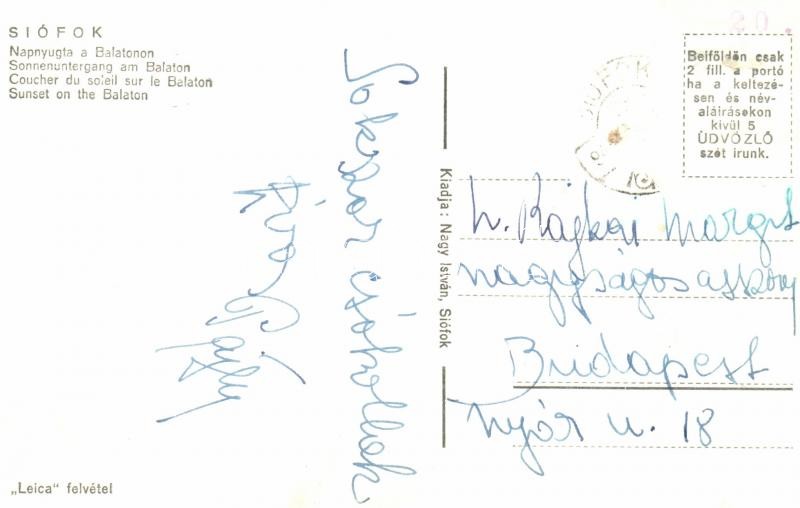 SIÓFOK
Napnyugta a Balatonon
Sonnenuntergang am Balaton
Coucher du soleil sur le Balaton
Sunset on the Balaton
Sokszor csókollak
„Leica" felvétel
Kiadja: Nagy István, Siófok
20.
SIÓFOK
Belföldön csak
2 fill. a portó
ha a keltezé-
sen és név-
aláirásokon
kivül 5
ÜDVÖZLŐ
szót irunk.
Rajkai Margit
nagyságos asszony
Budapest
Nyár u. 18